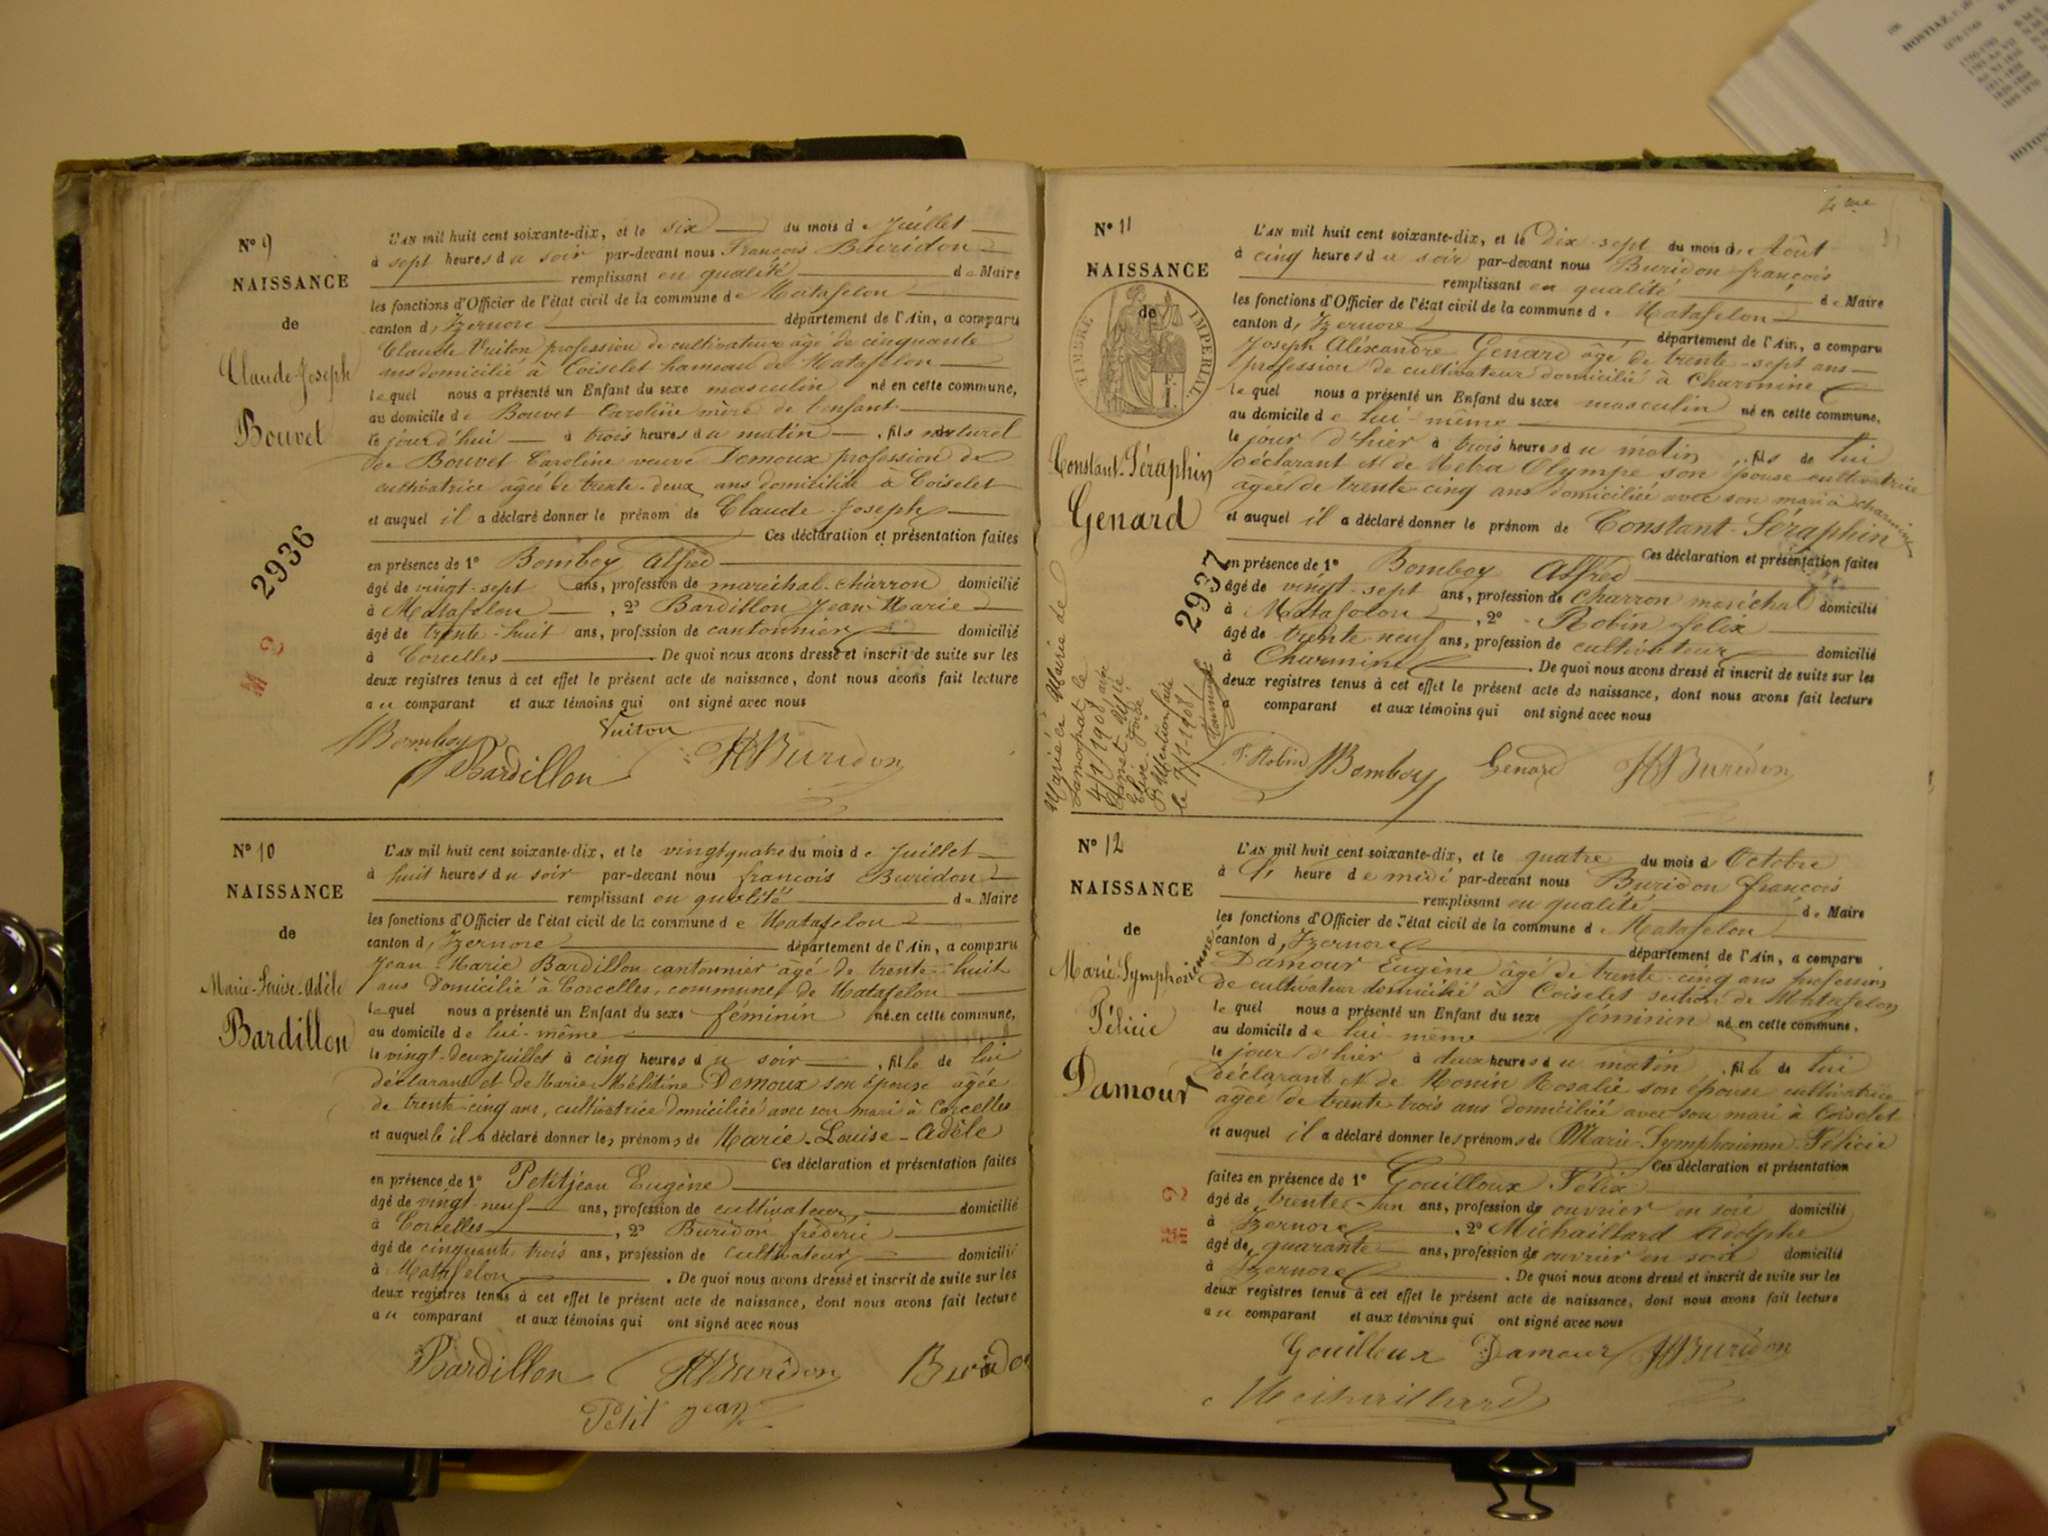 Nº 9
NAISSANCE
de
Claude-Joseph
Bouvet
2936
M 2
L'AN mil huit cent soixante-dix, et le six du mois de Juillet
à sept heures du soir par-devant nous François Buridon
remplissant en qualité de Maire
les fonctions d'Officier de l'état civil de la commune de Matafelon
canton d'Izernore département de l'Ain, a comparu
Claude Vuiton profession de cultivateur âgé de cinquante
ans domicilié à Coiselet hameau de Matafelon
lequel nous a présenté un Enfant du sexe masculin né en cette commune,
au domicile de Bouvet Caroline mère de l'enfant
le jour d'hui à trois heures du matin, fils naturel
de Bouvet Caroline veuve Demoux profession de
cultivatrice âgée de trente-deux ans domiciliée à Coiselet
et auquel il a déclaré donner le prénom de Claude-Joseph
Ces déclaration et présentation faites
en présence de 1º Bomboy Alfred
âgé de vingt-sept ans, profession de maréchal-charron domicilié
à Matafelon, 2º Bardillon Jean-Marie
âgé de trente-huit ans, profession de cantonnier domicilié
à Corcelles. De quoi nous avons dressé et inscrit de suite sur les
deux registres tenus à cet effet le présent acte de naissance, dont nous avons fait lecture
au comparant et aux témoins qui ont signé avec nous
Bomboy Vuiton
Bardillon Buridon
Nº 10
NAISSANCE
de
Marie-Louise-Adèle
Bardillon
L'AN mil huit cent soixante-dix, et le vingt quatre du mois de Juillet
à huit heures du soir par-devant nous françois Buridon
remplissant en qualité de Maire
les fonctions d'Officier de l'état civil de la commune de Matafelon
canton d'Izernore département de l'Ain, a comparu
Jean-Marie Bardillon cantonnier âgé de trente-huit
ans domicilié à Corcelles, commune de Matafelon
lequel nous a présenté un Enfant du sexe féminin né en cette commune,
au domicile de lui-même
le vingt-deux Juillet à cinq heures du soir, fille de lui
déclarant et de Marie Mélitine Demoux son épouse âgée
de trente-cinq ans, cultivatrice domiciliée avec son mari à Corcelles
et auquel le il a déclaré donner les prénoms de Marie-Louise-Adèle
Ces déclaration et présentation faites
en présence de 1º Petitjean Eugène
âgé de vingt-neuf ans, profession de cultivateur domicilié
à Corcelles, 2º Buridon fréderic
âgé de cinquante trois ans, profession de cultivateur domicilié
à Matafelon. De quoi nous avons dressé et inscrit de suite sur les
deux registres tenus à cet effet le présent acte de naissance, dont nous avons fait lecture
au comparant et aux témoins qui ont signé avec nous
Bardillon Buridon Buridon
Petit jean
4me
Nº 11
NAISSANCE
de
TIMBRE IMPERIAL
Constant-Séraphin
Genard
2937
Marié en Mairie de
Samognat le
4/1/1908 avec
le 7/1-1908
L'AN mil huit cent soixante-dix, et le Dix-sept du mois d'Août
à cinq heures du soir par-devant nous Buridon françois
remplissant en qualité de Maire
les fonctions d'Officier de l'état civil de la commune de Matafelon
canton d'Izernore département de l'Ain, a comparu
Joseph Aléxandre Genard âgé de trente-sept ans
profession de cultivateur domicilié à Charmine
lequel nous a présenté un Enfant du sexe masculin né en cette commune,
au domicile de lui-même
le jour d'hier à trois heures du matin, fils de lui
déclarant et de Metra Olympe son épouse cultivatrice
âgée de trente-cinq ans domiciliée avec son mari à Charmine
et auquel il a déclaré donner le prénom de Constant-Séraphin
Ces déclaration et présentation faites
en présence de 1º Bomboy Alfred
âgé de vingt-sept ans, profession de charron maréchal domicilié
à Matafelon, 2º Robin felix
âgé de trente-neuf ans, profession de cultivateur domicilié
à Charmine. De quoi nous avons dressé et inscrit de suite sur les
deux registres tenus à cet effet le présent acte de naissance, dont nous avons fait lecture
comparant et aux témoins qui ont signé avec nous
F. Robin Bomboy Genard Buridon
Nº 12
NAISSANCE
de
Marie-Symphorienne
Félicie
Damour
M 2
L'AN mil huit cent soixante-dix, et le quatre du mois d'Octobre
à heure de midi par-devant nous Buridon françois
remplissant en qualité de Maire
les fonctions d'Officier de l'état civil de la commune de Matafelon
canton d'Izernore département de l'Ain, a comparu
Damour Eugène âgé de trente-cinq ans profession
de cultivateur domicilié à Coiselet section de Matafelon
lequel nous a présenté un Enfant du sexe féminin né en cette commune,
au domicile de lui-même
le jour d'hier à deux heures du matin, fille de lui
déclarant et de Monin Rosalie son épouse cultivatrice
âgée de trente trois ans domiciliée avec son mari à Coiselet
et auquel il a déclaré donner les prénoms de Marie-Symphorienne-Félicie
Ces déclaration et présentation
faites en présence de 1º Gouilloux Félix
âgé de trente-un ans, profession de ouvrier en soie domicilié
à Izernore, 2º Michaillard Adolphe
âgé de quarante ans, profession de ouvrier en soie domicilié
à Izernore. De quoi nous avons dressé et inscrit de suite sur les
deux registres tenus à cet effet le présent acte de naissance, dont nous avons fait lecture
au comparant et aux témoins qui ont signé avec nous
Gouilloux Damour Buridon
HOSTIAZ